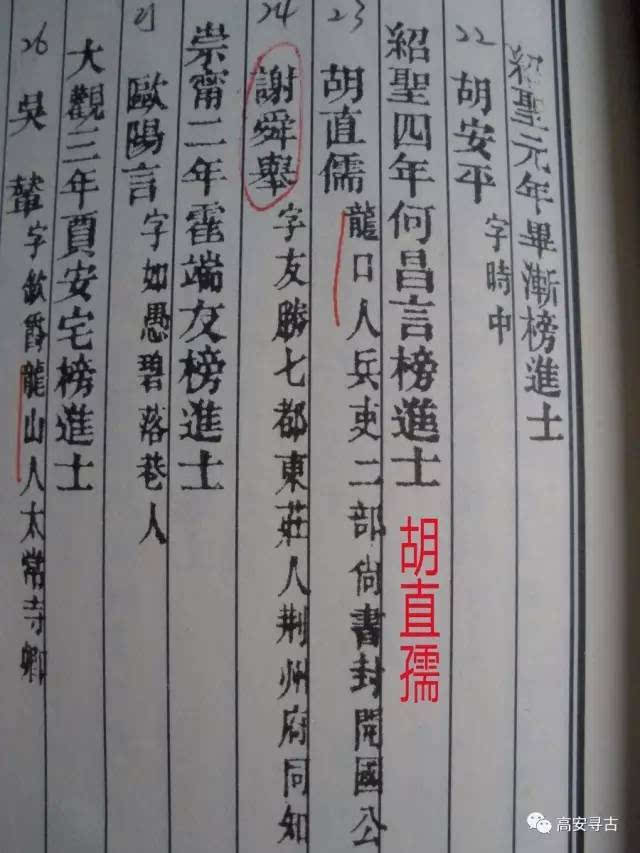 紹聖元年畢漸榜進士
22 胡安平 字時中
紹聖四年何昌言榜進士
23 胡直儒 龍口人兵吏二部尙書封開國公
24 謝舜舉 字友勝七都東莊人荆州府同知
崇甯二年霍端友榜進士
歐陽言 字如愚碧落巷人
大觀三年賈安宅榜進士
26 吳 字龍山人太常寺卿
胡直孺
高安寻古